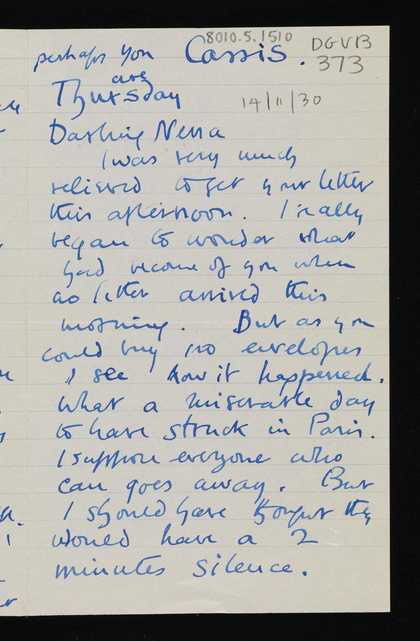 8010.5.1510
DGVB
373
perhaps you are Cassis.
Thursday
14/11/30
Darling Nessa
I was very much
relieved to get your letter
this afternoon. I really
began to wonder what
had become of you when
no letter arrived this
morning. But as you
could buy no envelopes
I see how it happened.
What a miserable day
to have struck in Paris.
I suppose everyone who
can goes away. But
I should have thought they
would have a 2
minutes silence.